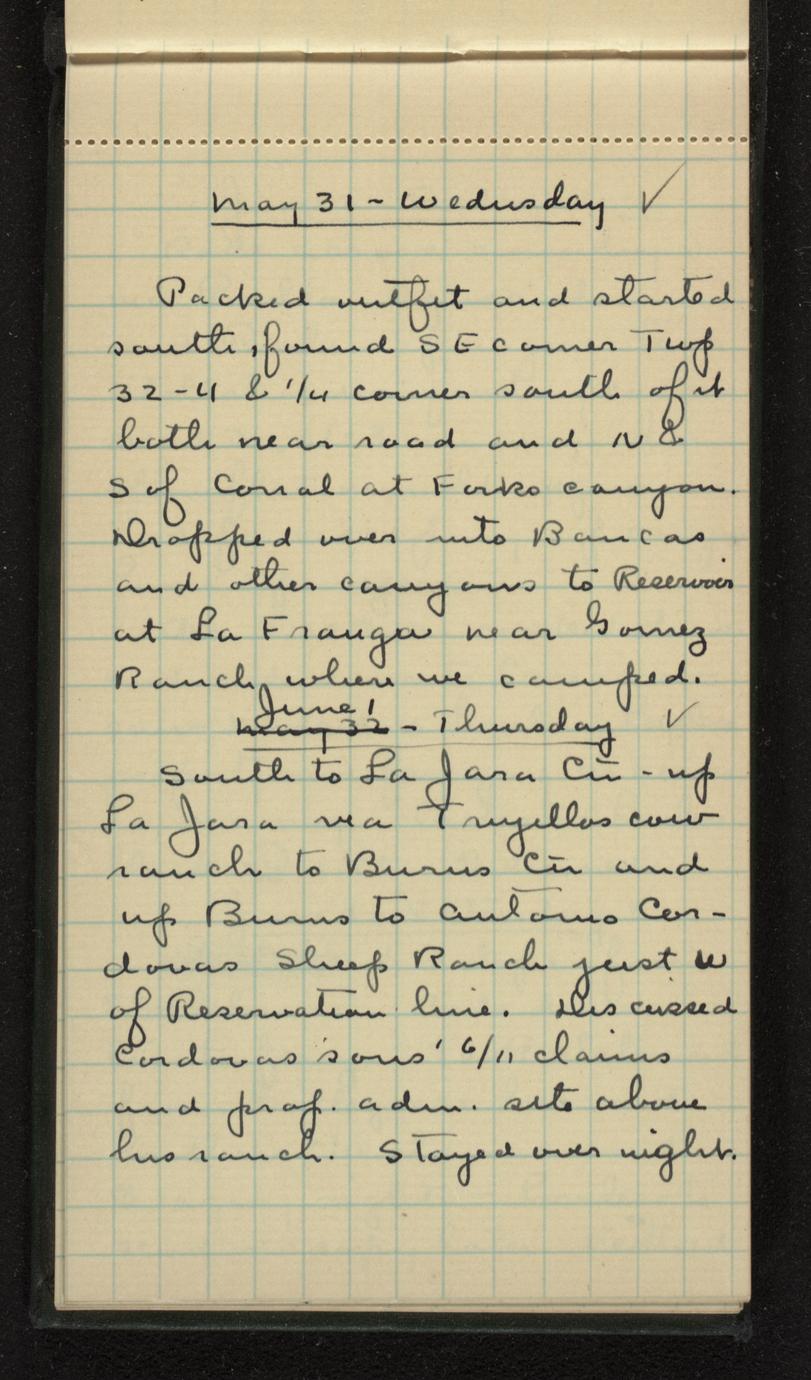 May 31 - Wednesday ✓
Packed outfit and started
south, found SE corner Twp
32-4 & 1/4 corner south of it
both near road and N &
S of Corral at Forks canyon.
Dropped over into Bancas
and other canyons to Reservoir
at La Franga near Gomez
Ranch where we camped.
June 1
May 32 - Thursday ✓
South to La Jara Cn - up
La Jara via Trujillos cow
ranch to Burns Cn and
up Burns to Antonio Cor-
dovas Sheep Ranch just W
of Reservation line. Discussed
Cordovas sons' 6/11 claims
and prop. adm. site above
his ranch. Stayed over night.